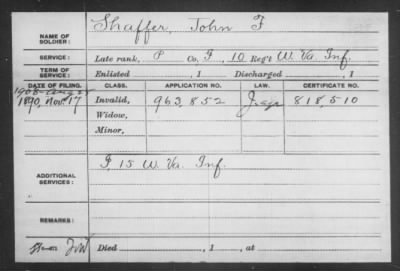 NAME OF SOLDIER: Shaffer, John F
SERVICE: Late rank, P Co. I, 10 Reg't W. Va. Inf.
TERM OF SERVICE: Enlisted , 1 Discharged , 1
DATE OF FILING. CLASS. APPLICATION NO. LAW. CERTIFICATE NO.
1890, Nov. 17 Invalid, 963,852 818,510
Widow,
Minor,
ADDITIONAL SERVICES: I 15 W. Va. Inf.
REMARKS:
Died , 1 , at